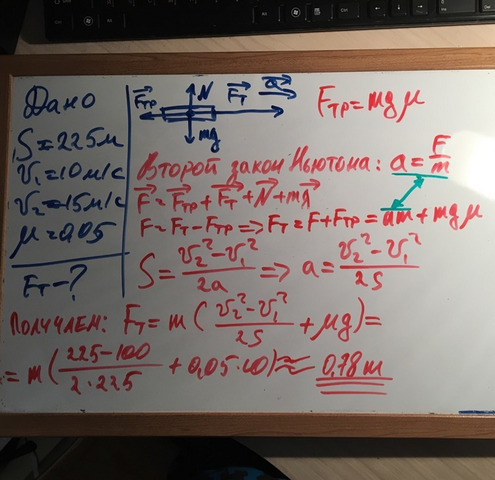 Дано
S=225м
v₁=10м/с
v₂=15м/с
μ=0,05
Fт-?
Fтр N Fт a
mg
Fтр=mgμ
Второй закон Ньютона: a=F/m
F=Fтр+Fт+N+mg
F=Fт-Fтр=>Fт=F+Fтр=am+mgμ
S=(v₂²-v₁²)/2a => a=(v₂²-v₁²)/2S
Получаем: Fт=m((v₂²-v₁²)/2S+μg)=
=m((225-100)/(2·225)+0,05·10)≈0,78m